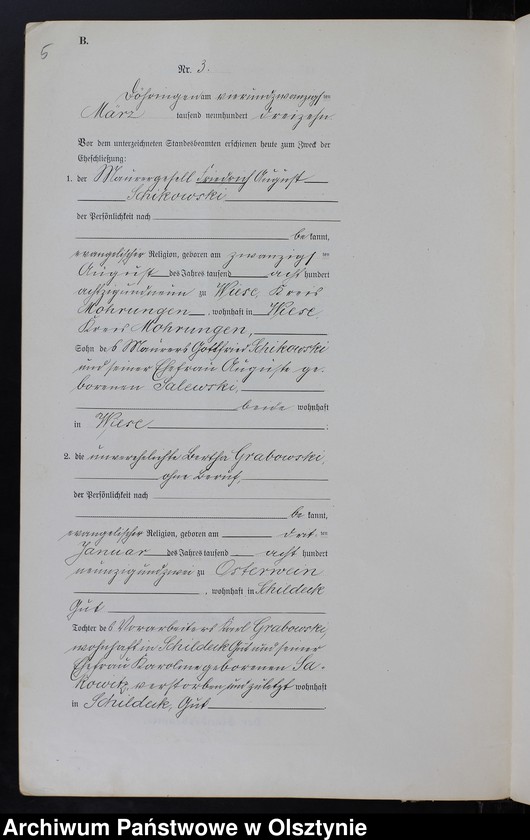 5
B.
Nr. 3.
Döhringen am vierundzwanzigsten
März tausend neunhundert dreizehn
Vor dem unterzeichneten Standesbeamten erschienen heute zum Zweck der
Eheschließung:
1. der Maurergesell Friedrich August
Schikowski
der Persönlichkeit nach
be kannt,
evangelischer Religion, geboren am zwanzigsten
August des Jahres tausend acht hundert
achtzigundneun zu Wiese, Kreis
Mohrungen, wohnhaft in Wiese
Kreis Mohrungen,
Sohn des Maurers Gottfried Schikowski
und seiner Ehefrau Auguste ge-
borenen Salewski,
beide wohnhaft
in Wiese ;
2. die unverehelichte Bertha Grabowski,
ohne Beruf,
der Persönlichkeit nach
be kannt,
evangelischer Religion, geboren am drit ten
Januar des Jahres tausend acht hundert
neunzigundzwei zu Osterwein
, wohnhaft in Schildeck
Gut
Tochter des Vorarbeiters Karl Grabowski,
wohnhaft in Schildeck Gut und seiner
Ehefrau Karoline geborenen Sa-
kowitz, verstorben und zuletzt wohnhaft
in Schildeck, Gut
Archiwum Państwowe w Olsztynie